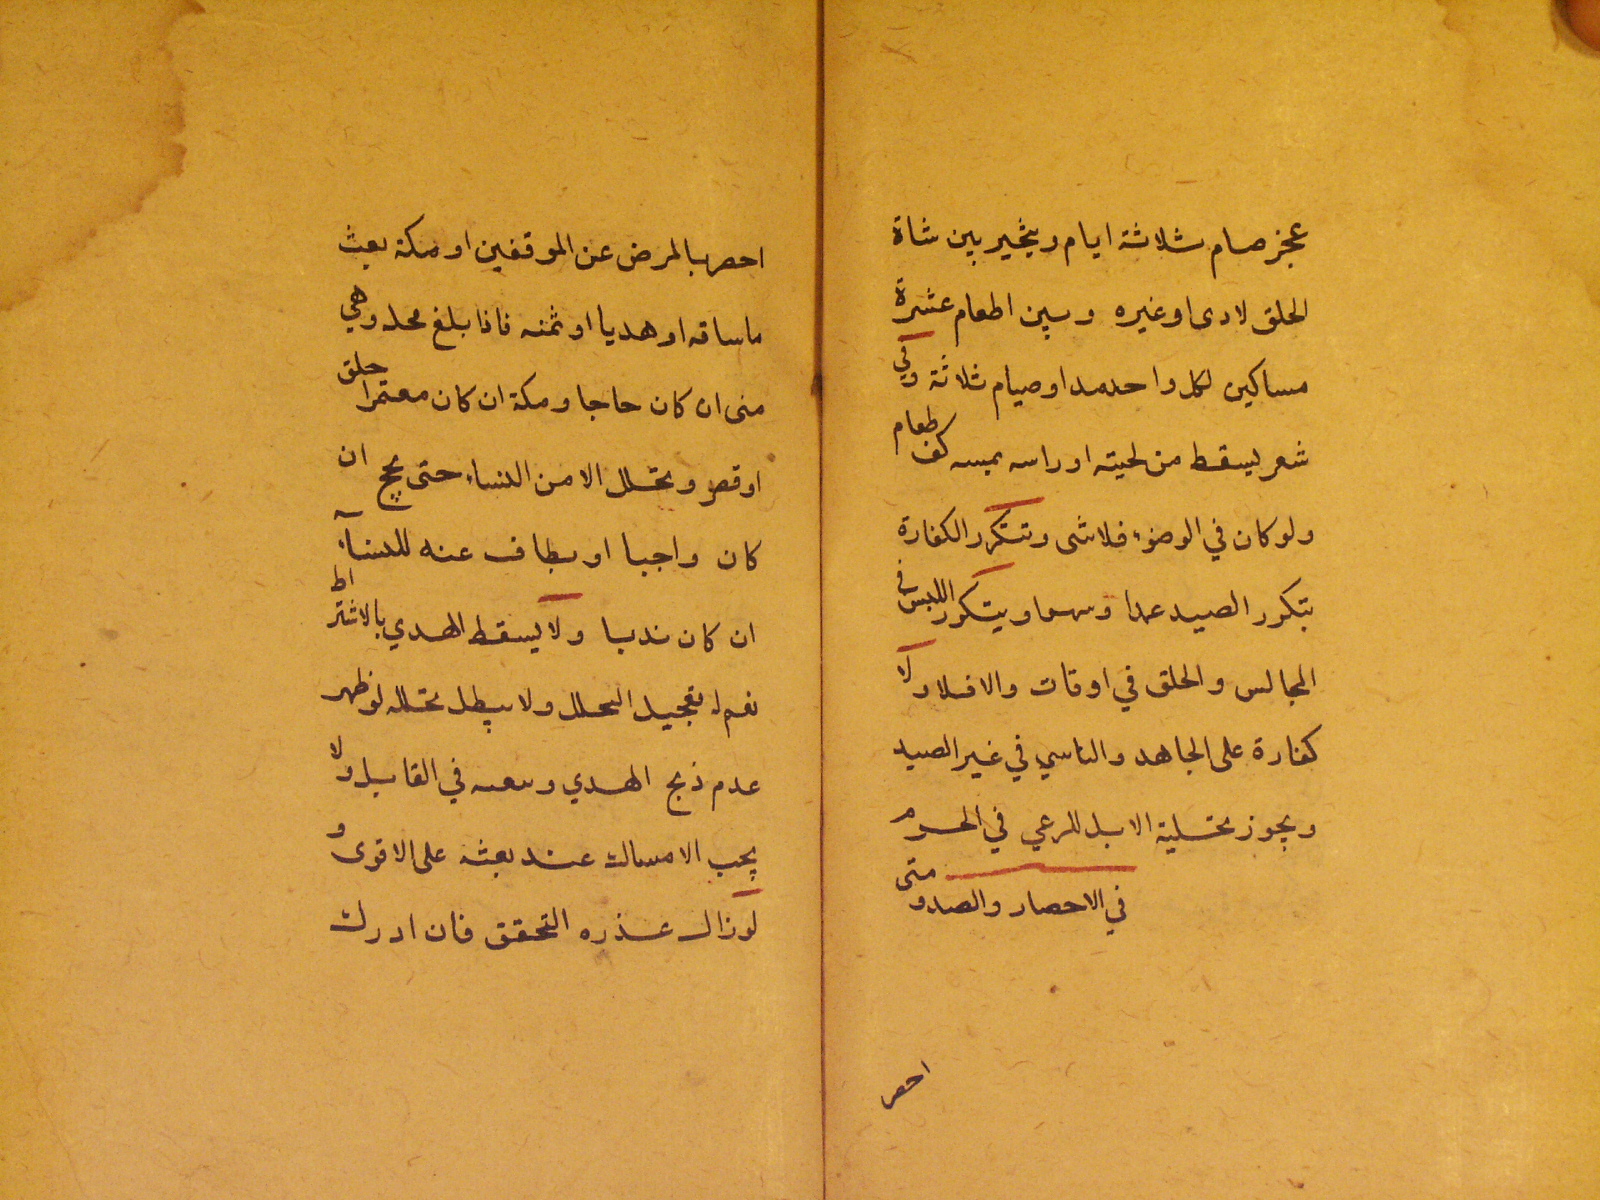 عجز صام ثلاثة ايام ويتخير بين شاة
الحلق لاذى او غيره وبين اطعام عشرة
مساكين لكل واحد مد او صيام ثلاثة وفي
شعر يسقط من لحيته او راسه بمسه كف طعام
ولو كان في الوضوء فلا شى وتتكرر الكفارة
بتكرر الصيد عمدا وسهوا ويتكرر اللبس في
المجالس والحلق في اوقات والا فلا ولا
كفارة على الجاهل والناسي في غير الصيد
ويجوز تخلية الابل للرعي في الحرم
في الاحصار والصد ومتى
احصر
احصر بالمرض عن الموقفين او مكة بعث
ما ساقه او هديا او ثمنه فاذا بلغ محله وهي
منى ان كان حاجا ومكة ان كان معتمرا حلق
او قصر وتحلل الا من النساء حتى يحج ان
كان واجبا او يطاف عنه للنساء
ان كان ندبا ولا يسقط الهدي بالاشتراط
نعم له تعجيل التحلل ولا يبطل تحلله لو ظهر
عدم ذبح الهدي ويبعثه في القابل ولا
يجب الامساك عند بعثه على الاقوى و
لو زال عذره التحقق فان ادرك